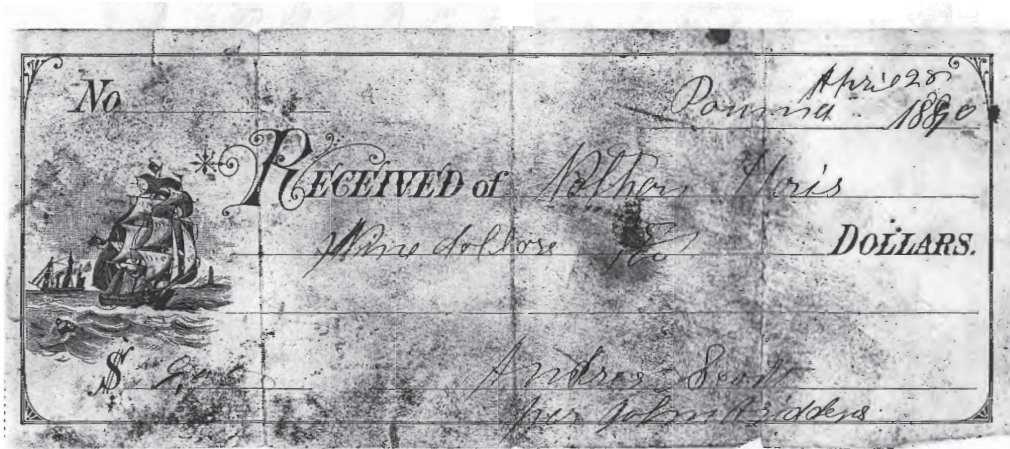 No
April 28
Pound 1880
RECEIVED of Nathan Horis
Nine dollars DOLLARS.
$
Andres
per John Giddens